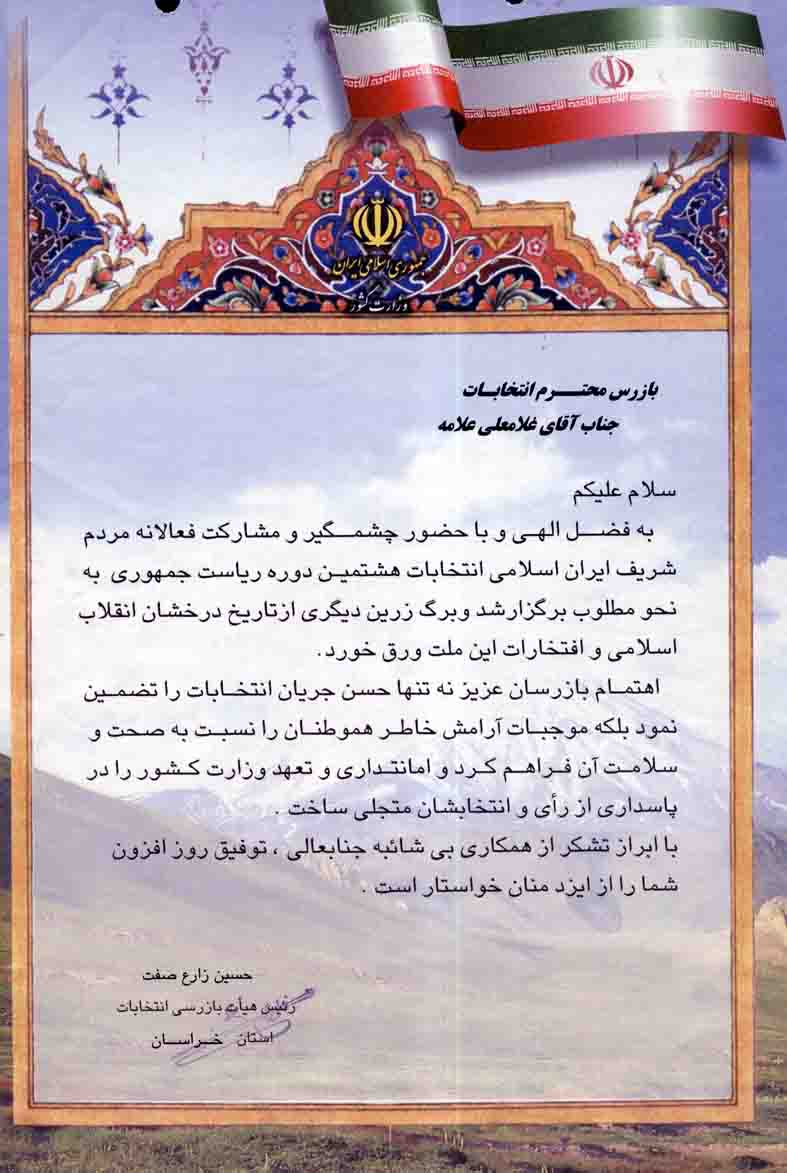 جمهوری اسلامی ایران
وزارت کشور
بازرس محترم انتخابات
جناب آقای غلامعلی علامه
سلام علیکم
به فضل الهی و با حضور چشمگیر و مشارکت فعالانه مردم
شریف ایران اسلامی انتخابات هشتمین دوره ریاست جمهوری به
نحو مطلوب برگزارشد وبرگ زرین دیگری ازتاریخ درخشان انقلاب
اسلامی و افتخارات این ملت ورق خورد.
اهتمام بازرسان عزیز نه تنها حسن جریان انتخابات را تضمین
نمود بلکه موجبات آرامش خاطر هموطنان را نسبت به صحت و
سلامت آن فراهم کرد و امانتداری و تعهد وزارت کشور را در
پاسداری از رأی و انتخابشان متجلی ساخت .
با ابراز تشکر از همکاری بی شائبه جنابعالی ، توفیق روز افزون
شما را از ایزد منان خواستار است .
حسین زارع صفت
رئیس هیأت بازرسی انتخابات
استان خراسان